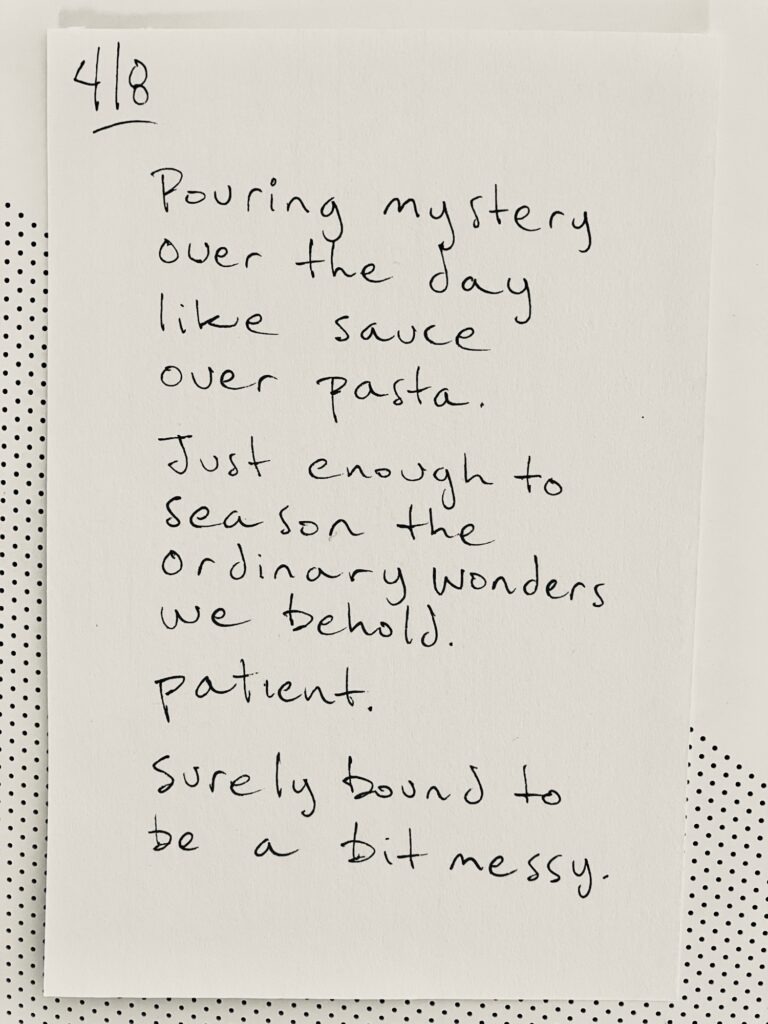 4/8
Pouring mystery
over the day
like sauce
over pasta.
Just enough to
season the
ordinary wonders
we behold.
patient.
Surely bound to
be a bit messy.